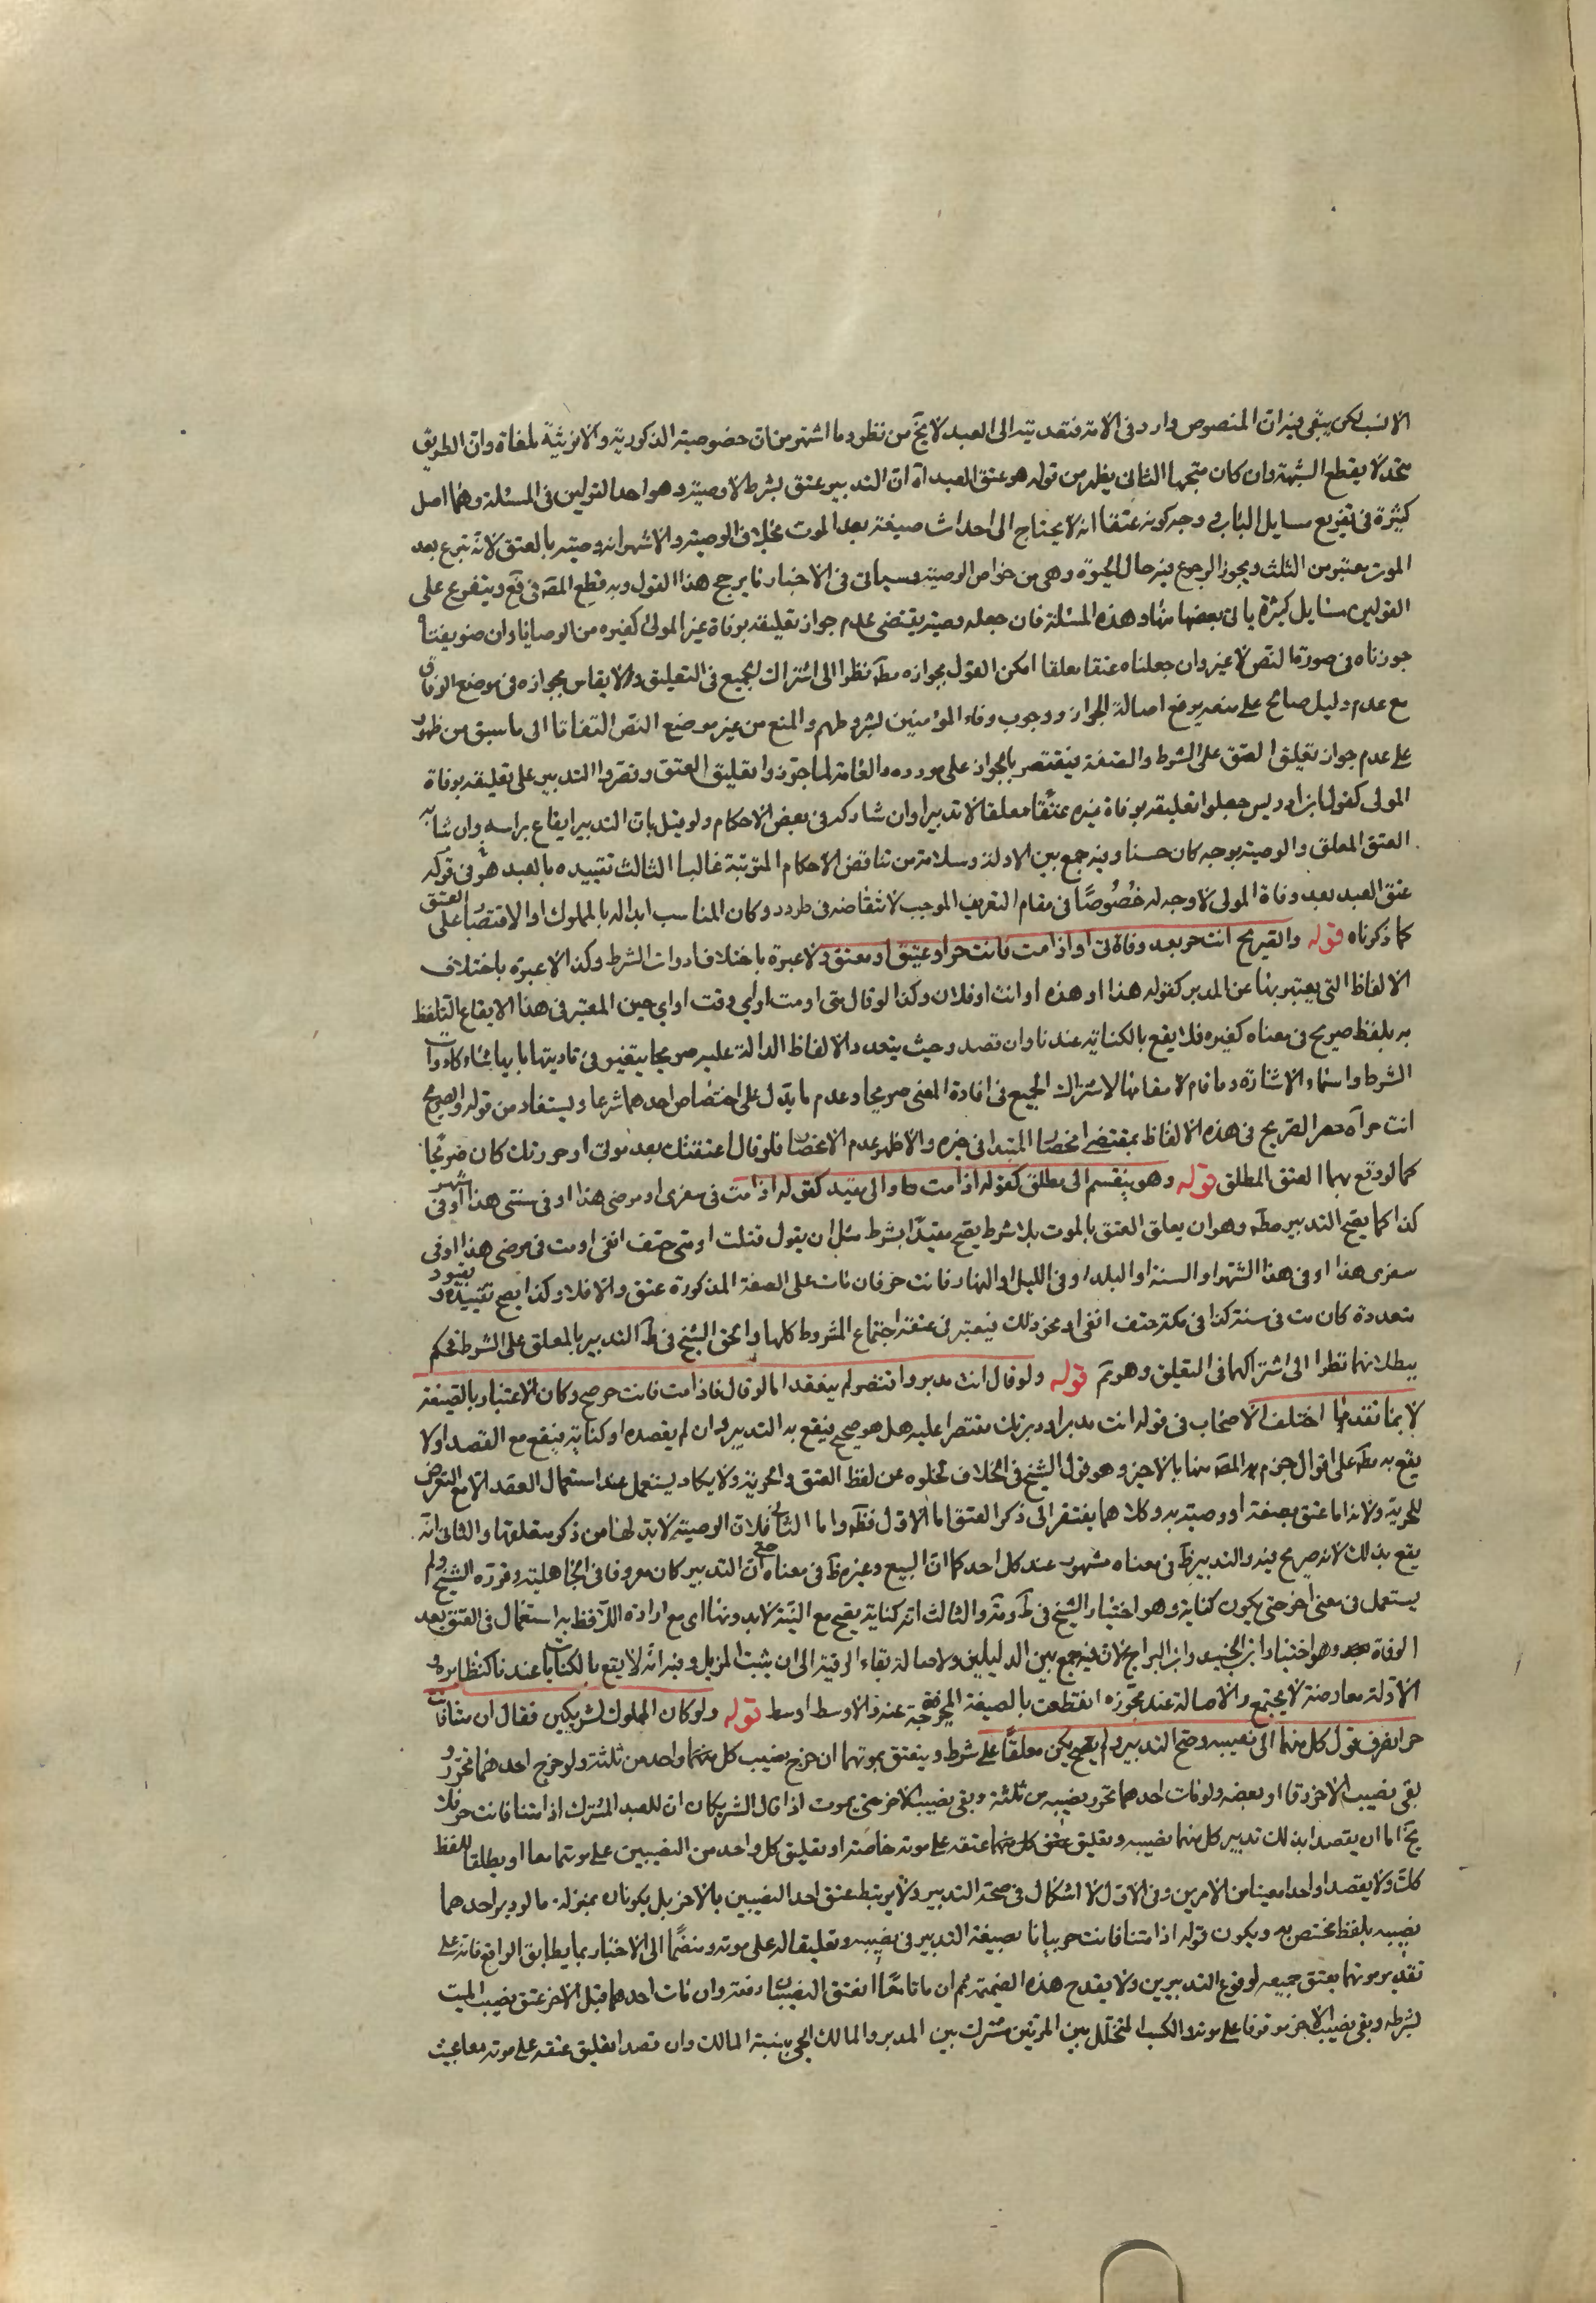 الانسب لكن يبقى فيه ان المنصوص وارد فى الامة فتعديته الى العبد لا يخ من نظر وما اشتهر من ان خصوصية الذكورية والانوثية ملغاة وان الطريق
متحد لا يقطع الشبهة وان كان متجها الثانى يظهر من قوله هو عتق العبد اه ان التدبير عتق بشرط لا وصية وهو احد القولين فى المسئلة وهما اصل
كثيرة فى تفريع مسايل الباب وجه كونه عتقا انه لا يحتاج الى احداث صيغة بعد الموت بخلاف الوصية والاشهر انه وصية بالعتق لانه تبرع بعد
الموت معتبر من الثلث ويجوز الرجوع فيه حال الحيوة وهى من خواص الوصية وسياتى فى الاخبار ما يرجح هذا القول وبه قطع المصه فى فع ويتفرع على
القولين مسايل كثيرة ياتى بعضها منها وهذه المسئلة فان جعله وصية يقتضى عدم جواز تعليقه بوفاة غير المولى كغيره من الوصايا وان
جوزناه فى صورة النص لا غير وان جعلناه عتقا معلقا امكن القول بجوازه مطه نظرا الى اشتراك الجميع فى التعليق والايقاس بجوازه فى موضع الوفاق
مع عدم دليل صالح على منعه مع اصالة الجواز ووجوب وفاء المؤمنين بشروطهم والمنع من غير موضع النص التفاتا الى ما سبق من ظهور
على عدم جواز تعليق العتق على الشرط والصفة فيقتصر بالجواز على مورده والعامة لما جوزوا تعليق العتق وقصروا التدبير على تعليقه بوفاة
المولى كقول ابن ادريس جعلوا تعليقه بوفاة غيره عتقا معلقا لا تدبيرا وان شاركه فى بعض الاحكام ولو قيل بان التدبير ايقاع براسه وان شابه
العتق المعلق والوصية بوجه كان حسنا وفيه جمع بين الادلة وسلامة من تناقض الاحكام المترتبة غالبا الثالث تقييده بالعبد هو فى قوله
عتق العبد بعد وفاة المولى لا وجه له خصوصا فى مقام التعريف الموجب لانتقاضه فى طرده وكان المناسب ابداله بالمملوك او الاقتصار على العتق
كما ذكرناه قوله والصريح انت حر بعد وفاتى او اذا مت فانت حر او عتيق او معتق ولا عبرة باختلاف ادوات الشرط وكذا لا عبرة باختلاف
الالفاظ التى يعتبر بها عن المدبر كقوله هذا او هذه او انت او فلان وكذا لو قال متى او مت او اى وقت او اى حين المعتبر فى هذا الايقاع التلفظ
به بلفظ صريح فى معناه كغيره فلا يقع بالكناية عندنا وان قصد وحيث يتعدد الالفاظ الدالة عليه صريحا يتخير فى تاديتها بايها شاء كادوات
الشرط واسماء الاشارة وما قام مقامها لاشتراك الجميع فى افادة المعنى صريحا وعدم ما يدل على اختصاص احدهما شرعا ويستفاد من قوله والصريح
انت حر اه حصر الصريح فى هذه الالفاظ بمقتضى انحصار المبتدا فى خبره والاظهر عدم الانحصار فلو قال اعتقتك بعد موتى او حررتك كان صريحا
كما لو وقع بهما العتق المطلق قوله وهو ينقسم الى مطلق كقوله اذا مت والى مقيد كقوله اذا مت فى سفرى او مرضى هذا او فى سنتى هذا او فى شهر
كذا كما يصح التدبير مطه وهو ان يعلق العتق بالموت بلا شرط يصح مقيدا بشرط مثل ان يقول قتلت او متى حتف انفى او مت فى مرضى هذا او فى
سفرى هذا او فى هذا الشهر او السنة او البلد او فى الليل او النهار فانت حر فان مات على الصفة المذكورة عتق والا فلا وكذا يصح تقييده بقيود
متعددة كان مت فى سنة كذا فى مكة حتف انفى او نحو ذلك فيعتبر فى عتقه اجتماع الشروط كلها والحق الشيخ فى ط التدبير بالمعلق على الشرط فحكم
ببطلانهما نظرا الى اشتراكهما فى التعليق وهو تم قوله ولو قال انت مدبر واقتصر لم ينعقد اما لو قال فاذا مت فانت حر صح وكان الاعتبار بالصيغة
لا بما تقدمها اختلف الاصحاب فى قوله انت مدبر او دبرتك مقتصرا عليه هل هو صحيح فيقع به التدبير وان لم يقصده او كناية فيقع مع القصد او لا
يقع به مطه على اقوال جزم المصه منها بالاخير وهو قول الشيخ فى الخلاف لخلوه عن لفظ العتق والحرية ولا يكاد يستعمل عند استعمال العقد الا مع التعرض
للحرية ولانه اما عتق بصفة او وصية به وكلاهما يفتقر الى ذكر العتق اما الاول فظه واما الثانى فلان الوصية لا بد لها من ذكر متعلقها والثانى انه
يقع بذلك لانه صريح فيه والتدبير ظ فى معناه مشهور عند كل احد كما ان البيع وغيره ظ فى معناه حتى ان التدبير كان معروفا فى الجاهلية وقرره الشرع ولم
يستعمل فى معنى اخر حتى يكون كناية وهو اختيار الشيخ فى ط وثه والثالث انه كناية يصح مع النية لا بدونها اى مع ارادة اللافظ به استعمال فى العتق بعد
الوفاة وهو اختيار ابن الجنيد وابن البراج لان فيه جمع بين الدليلين ولاصالة بقاء الرقية الى ان يثبت المزيل وفيه انه لا يقع بالكنايات عندنا كنظايره و
الادلة معارضة لا يجتمع والاصالة عند مجوزه انقطعت بالصيغة المرجحة عنده فالاوسط اوسط قوله ولو كان المملوك لشريكين فقال ان متنا فانت
حر انصرف قول كل منهما الى نصيبه وصح التدبير ولم يكن معلقا على شرط وينعتق بموتهما ان خرج نصيب كل منهما واحد من ثلثه ولو خرج احدهما تحرر و
بقى نصيب الاخر رقا او بعضه ولو مات احدهما تحرر نصيبه من ثلثه وبقى نصيب الاخر حتى يموت اذا قال الشريكان للعبد المشترك اذا متنا فانت حر فلا
يخ اما ان يقصدا بذلك تدبير كل منهما نصيبه وتعليق عتقه على موته خاصة او تعليق كل واحد من النصيبين على موتهما معا او يطلقا اللفظ
كلك ولا يقصدا واحدا معينا من الامرين وفى الاول لا اشكال فى صحة التدبير ولا يرتبط عتق احد النصيبين بالاخر بل يكونان بمنزلة ما لو دبر احدهما
نصيبه بلفظ يختص به ويكون قوله اذا متنا فانت حر بيانا لصيغة التدبير فى نصيبه وتعليقا له على موته ومنضما الى الاخبار بما يطابق الواقع فانه على
تقدير موتهما يعتق جميعه لوقوع التدبيرين ولا يقدح هذه الضميمة ثم ان ماتا معا انعتق النصيبان دفعة وان مات احدهما قبل الاخر عتق نصيب الميت
بشرطه وبقى نصيب الاخر موقوفا على موته والكسب المتخلل بين الموتين مشترك بين المدبر والمالك الحى بنسبة المالك وان قصدا تعليق عتقه على موته معا بحيث